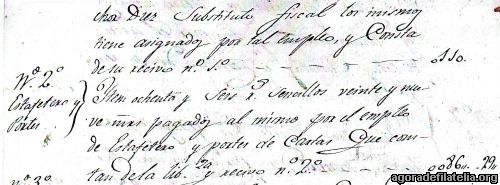 cho Diez Substituto fiscal los mismos
tiene asignados por tal Empleo, y Consta
de su recivo n.º 1.º 110.
N.º 2.º
Estafetero y
Portes
Ytem ochenta y seis r.s Sencillos veinte y nu-
ve mrs pagados al mismo por el empleo
de Estafetero y portes de Cartas que cons-
tan de la lib.za y recivo n.º 2.º 086,, 29,,
agoradefilatelia.org